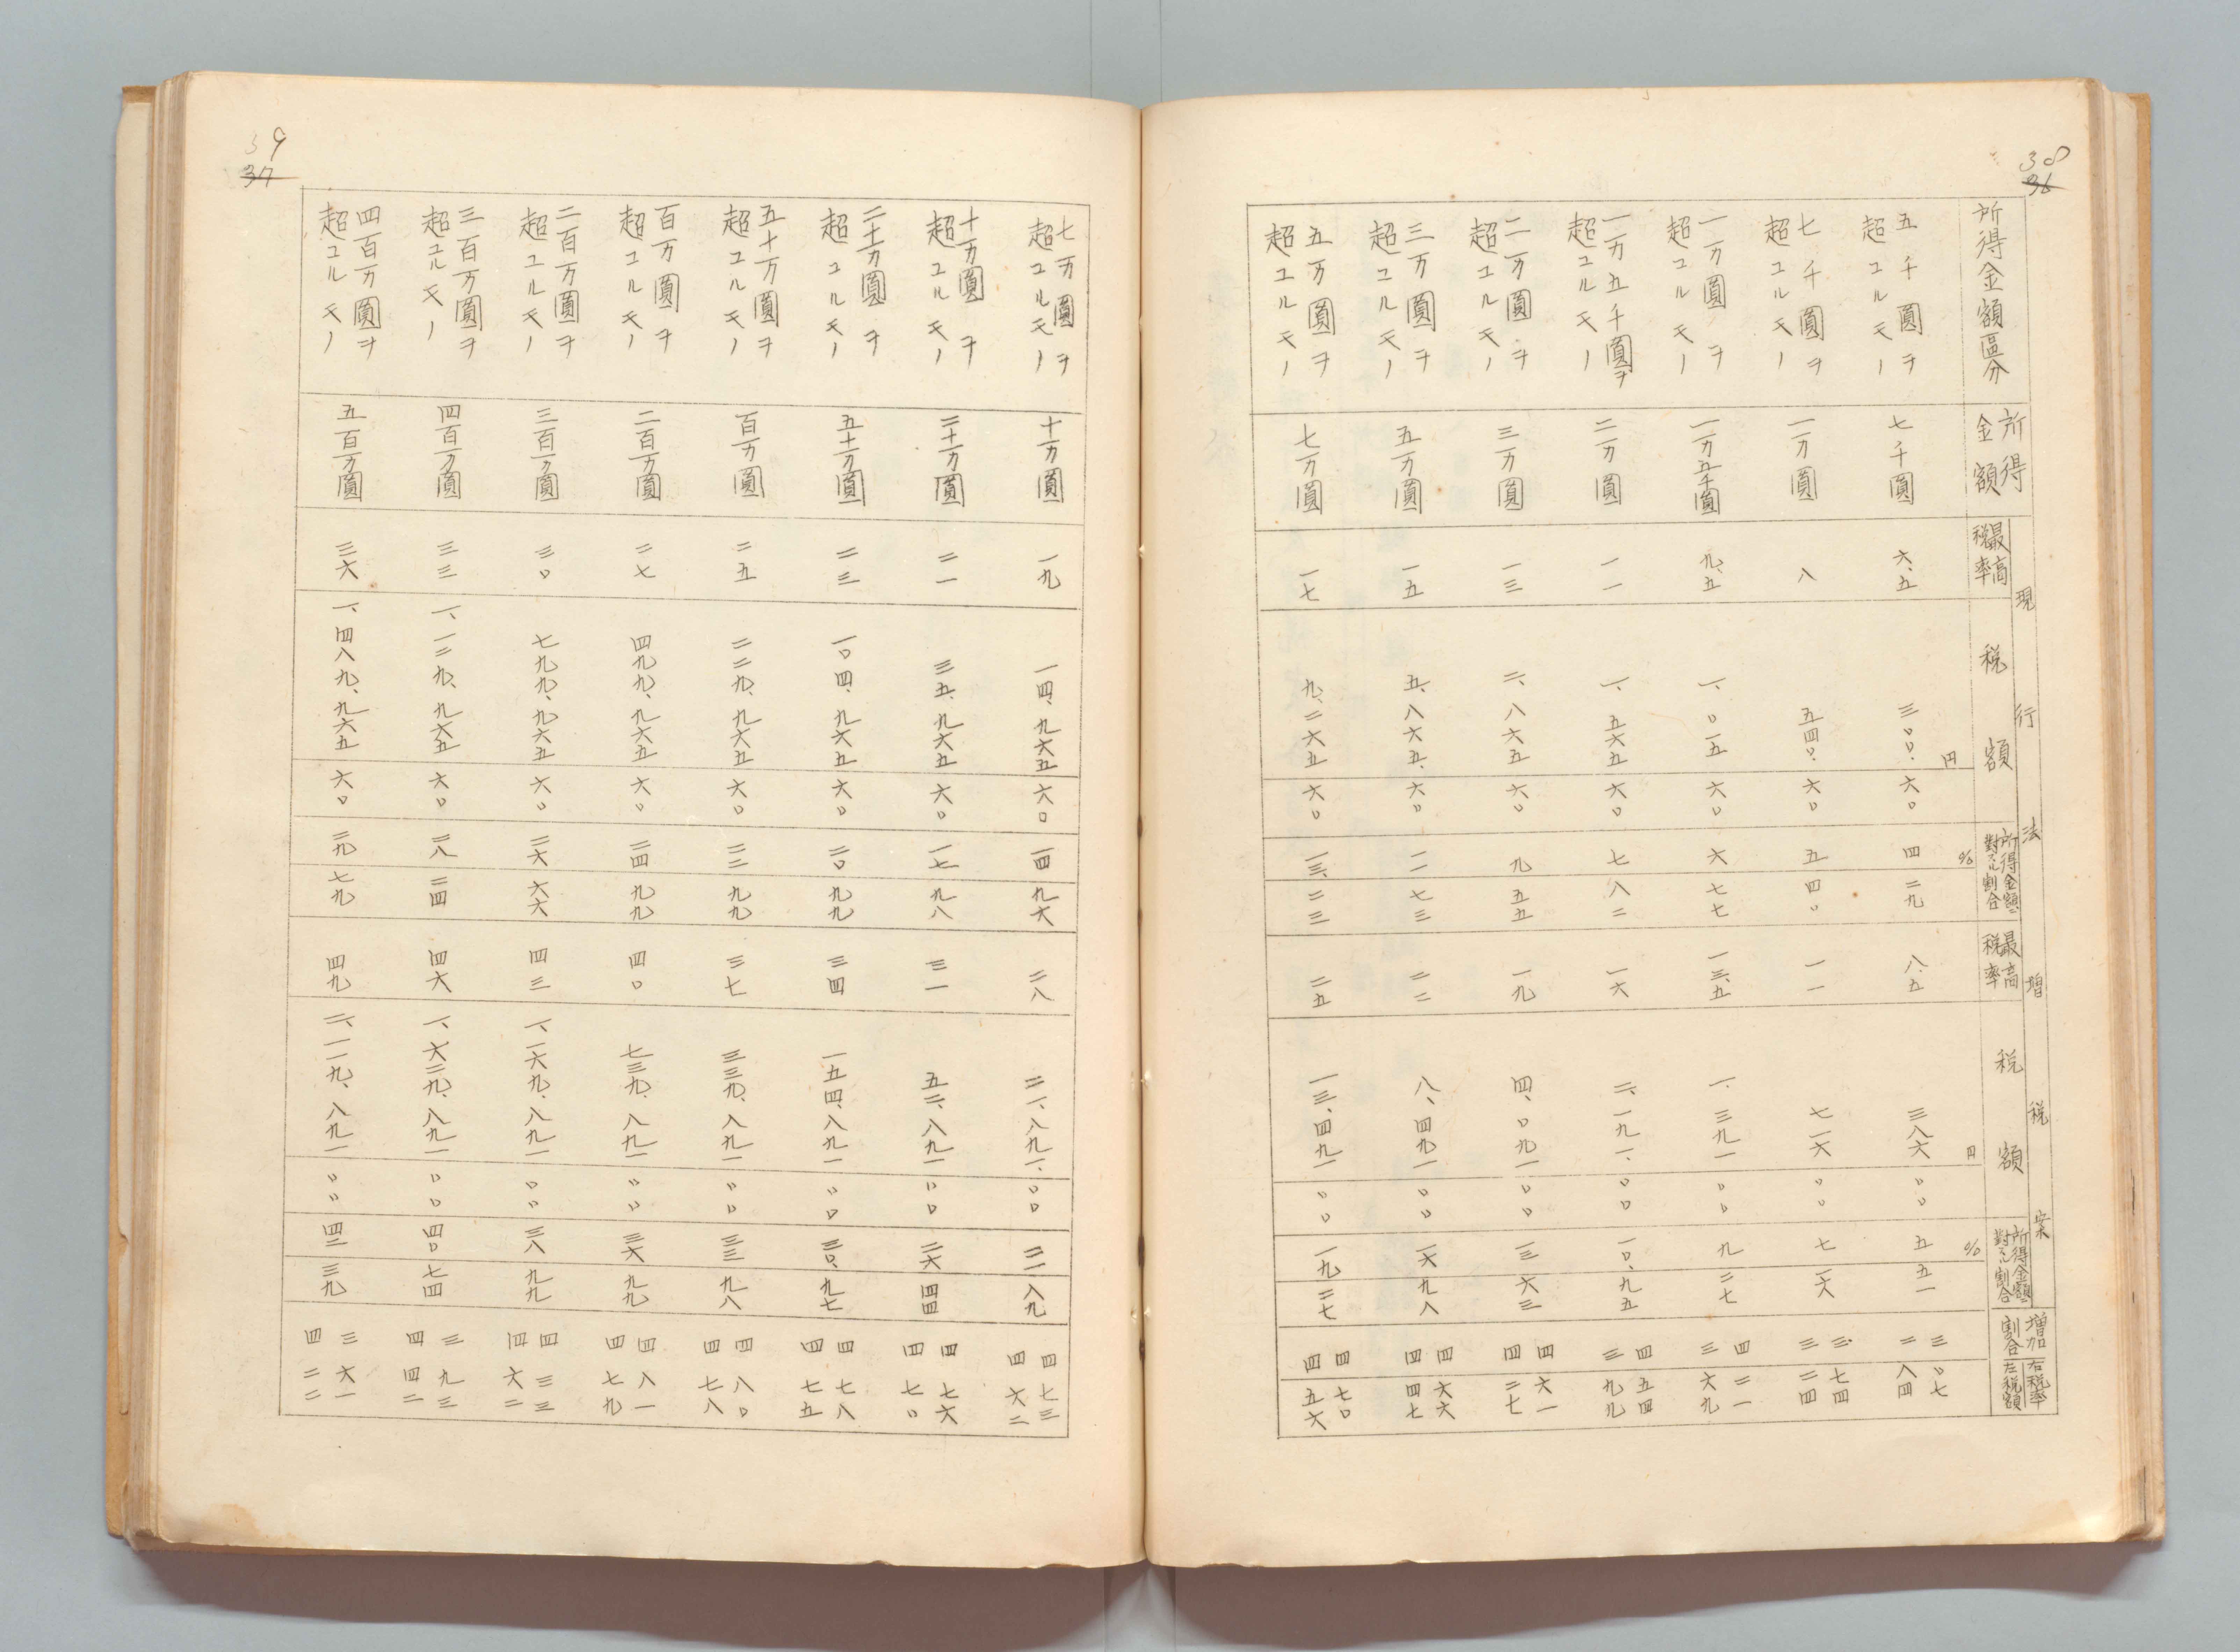 38
36
所得金額區分
所得
金額
現行法
最高
税率
税額
円
所得金額ニ
對スル割合
%
増税案
最高
税率
税額
円
所得金額ニ
對スル割合
%
増加
割合
右税率
左税額
五千圓ヲ
超ユルモノ
七千圓
六、五
三〇〇、六〇
四 二九
八、五
三八六 〇〇
五 五一
三 〇七
二 八四
七千圓ヲ
超ユルモノ
一万圓
八
五四〇、六〇
五 四〇
一一
七一六 〇〇
七 一六
三 七四
三 二四
一万圓ヲ
超ユルモノ
一万五千圓
九、五
一、〇一五 六〇
六 七七
一三、五
一、三九一 〇〇
九 二七
四 二一
三 六九
一万五千圓ヲ
超ユルモノ
二万圓
一一
一、五六五 六〇
七 八二
一六
二、一九一、〇〇
一〇、九五
四 五四
三 九九
二万圓ヲ
超ユルモノ
三万圓
一三
二、八六五 六〇
九 五五
一九
四、〇九一 〇〇
一三 六三
四 六一
四 二七
三万圓ヲ
超ユルモノ
五万圓
一五
五、八六五、六〇
一一 七三
二二
八、四九一 〇〇
一六 九八
四 六六
四 四七
五万圓ヲ
超ユルモノ
七万圓
一七
九、二六五 六〇
一三、二三
二五
一三、四九一 〇〇
一九 二七
四 七〇
四 五六
39
37
七万圓ヲ
超ユルモノ
十万圓
一九
一四、九六五 六〇
一四 九六
二八
二一、八九一、〇〇
二一 八九
四 七三
四 六二
十万圓ヲ
超ユルモノ
二十万圓
二一
三五、九六五 六〇
一七 九八
三一
五二、八九一 〇〇
二六 四四
四 七六
四 七〇
二十万圓ヲ
超ユルモノ
五十万圓
二三
一〇四、九六五 六〇
二〇 九九
三四
一五四、八九一 〇〇
三〇、九七
四 七八
四 七五
五十万圓ヲ
超ユルモノ
百万圓
二五
二二九、九六五 六〇
二二 九九
三七
三三九、八九一 〇〇
三三 九八
四 八〇
四 七八
百万圓ヲ
超ユルモノ
二百万圓
二七
四九九、九六五 六〇
二四 九九
四〇
七三九、八九一 〇〇
三六 九九
四 八一
四 七九
二百万圓ヲ
超ユルモノ
三百万圓
三〇
七九九、九六五 六〇
二六 六六
四三
一、一六九、八九一 〇〇
三八 九九
四 三三
四 六二
三百万圓ヲ
超ユルモノ
四百万圓
三三
一、一二九、九六五 六〇
二八 二四
四六
一、六二九、八九一 〇〇
四〇 七四
三 九三
四 四二
四百万圓ヲ
超ユルモノ
五百万圓
三六
一、四八九、九六五 六〇
二九 七九
四九
二、一一九、八九一 〇〇
四二 三九
三 六一
四 二二